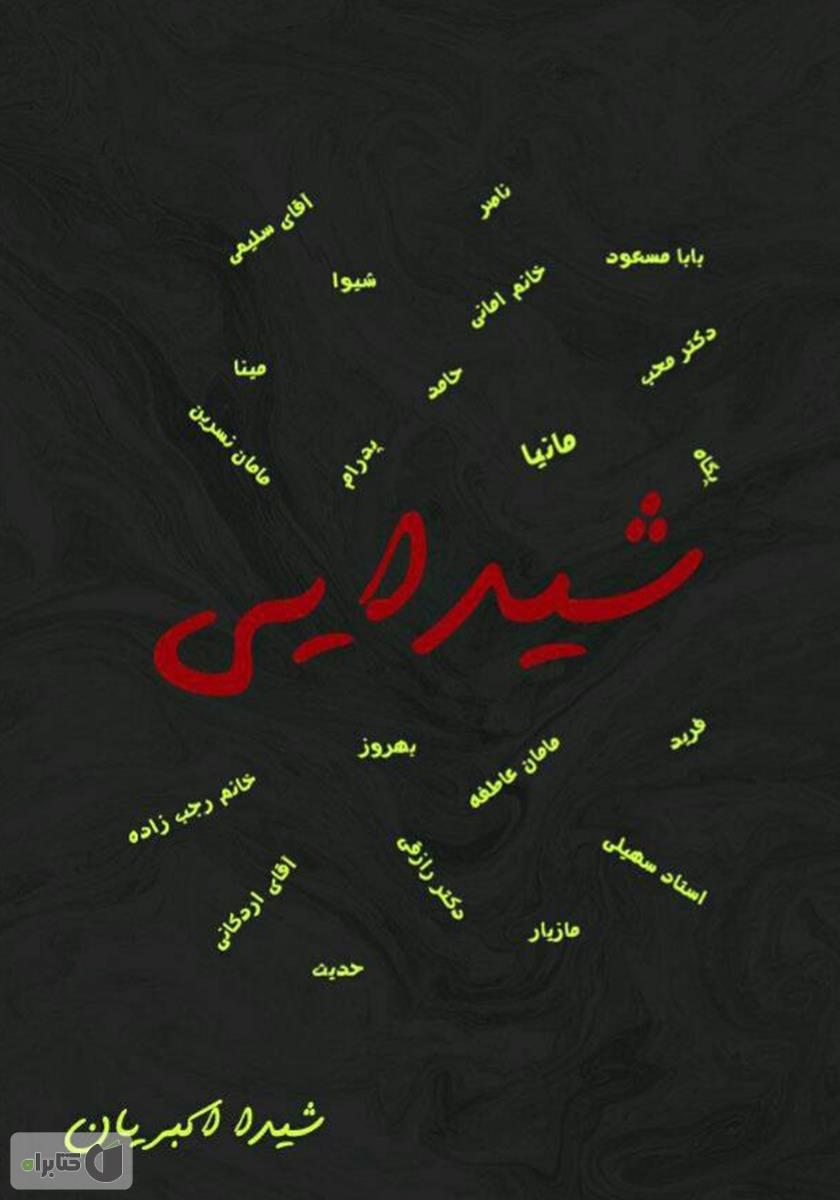 ناصر
آقای سلیمی
بابا مسعود
شیوا
خانم امانی
دکتر محب
مینا
حامد
مامان نسرین
پدرام
مانیا
پگاه
شیدایی
فرید
بهروز
مامان عاطفه
خانم رجب زاده
استاد سهیلی
دکتر رازقی
آقای اردکانی
مازیار
حدیث
شیدا اکبریان
کتابراه